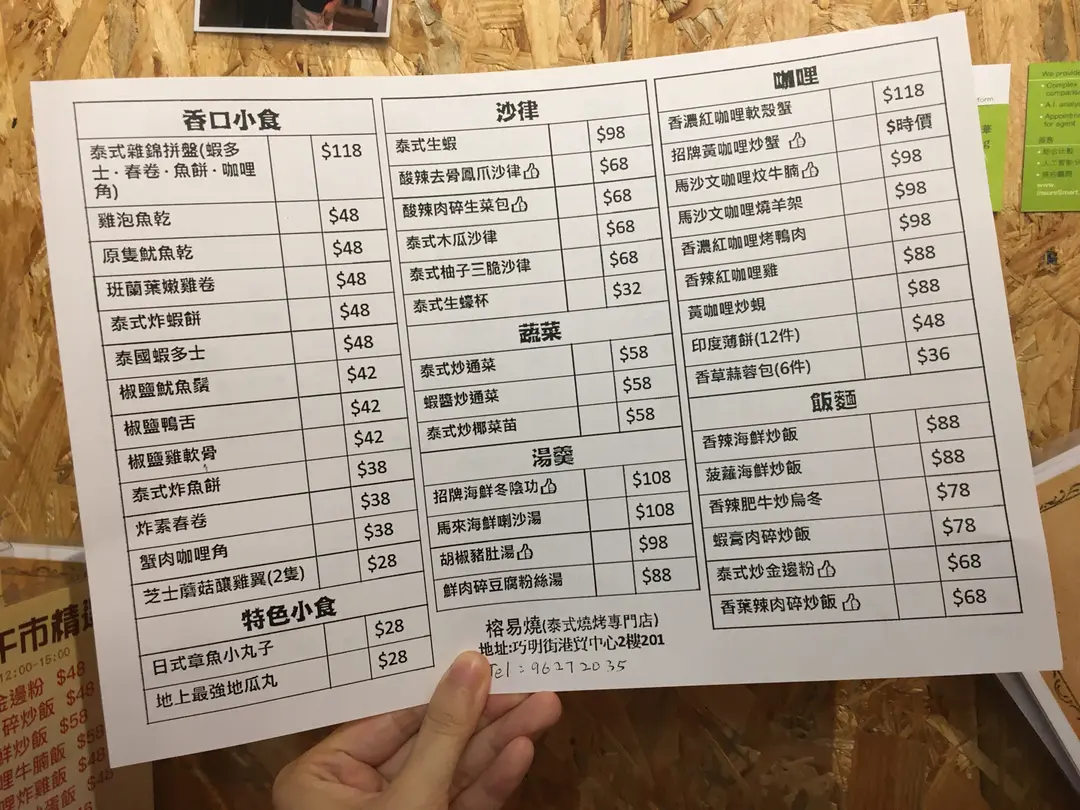 香口小食
泰式雜錦拼盤(蝦多 $118
士·春卷·魚餅·咖哩
角)
雞泡魚乾 $48
原隻魷魚乾 $48
班蘭葉嫩雞卷 $48
泰式炸蝦餅 $48
泰國蝦多士 $48
椒鹽魷魚鬚 $42
椒鹽鴨舌 $42
椒鹽雞軟骨 $42
泰式炸魚餅 $38
炸素春卷 $38
蟹肉咖哩角 $38
芝士蘑菇釀雞翼(2隻) $28
特色小食
日式章魚小丸子 $28
地上最強地瓜丸 $28
沙律
泰式生蝦 $98
酸辣去骨鳳爪沙律 $68
酸辣肉碎生菜包 $68
泰式木瓜沙律 $68
泰式柚子三脆沙律 $68
泰式生蠔杯 $32
蔬菜
泰式炒通菜 $58
蝦醬炒通菜 $58
泰式炒椰菜苗 $58
湯羹
招牌海鮮冬陰功 $108
馬來海鮮喇沙湯 $108
胡椒豬肚湯 $98
鮮肉碎豆腐粉絲湯 $88
榕易燒(泰式燒烤專門店)
地址:巧明街港貿中心2樓201
Tel : 96272035
咖哩
香濃紅咖哩軟殼蟹 $118
招牌黃咖哩炒蟹 $時價
馬沙文咖哩炆牛腩 $98
馬沙文咖哩燒羊架 $98
香濃紅咖哩烤鴨肉 $98
香辣紅咖哩雞 $88
黃咖哩炒蜆 $88
印度薄餅(12件) $48
香草蒜蓉包(6件) $36
飯麵
香辣海鮮炒飯 $88
菠蘿海鮮炒飯 $88
香辣肥牛炒烏冬 $78
蝦膏肉碎炒飯 $78
泰式炒金邊粉 $68
香葉辣肉碎炒飯 $68
午市精選
12:00-15:00
金邊粉 $48
碎炒飯 $48
鮮炒飯 $58
哩牛腩飯 $58
哩炸雞飯 $48
We provide